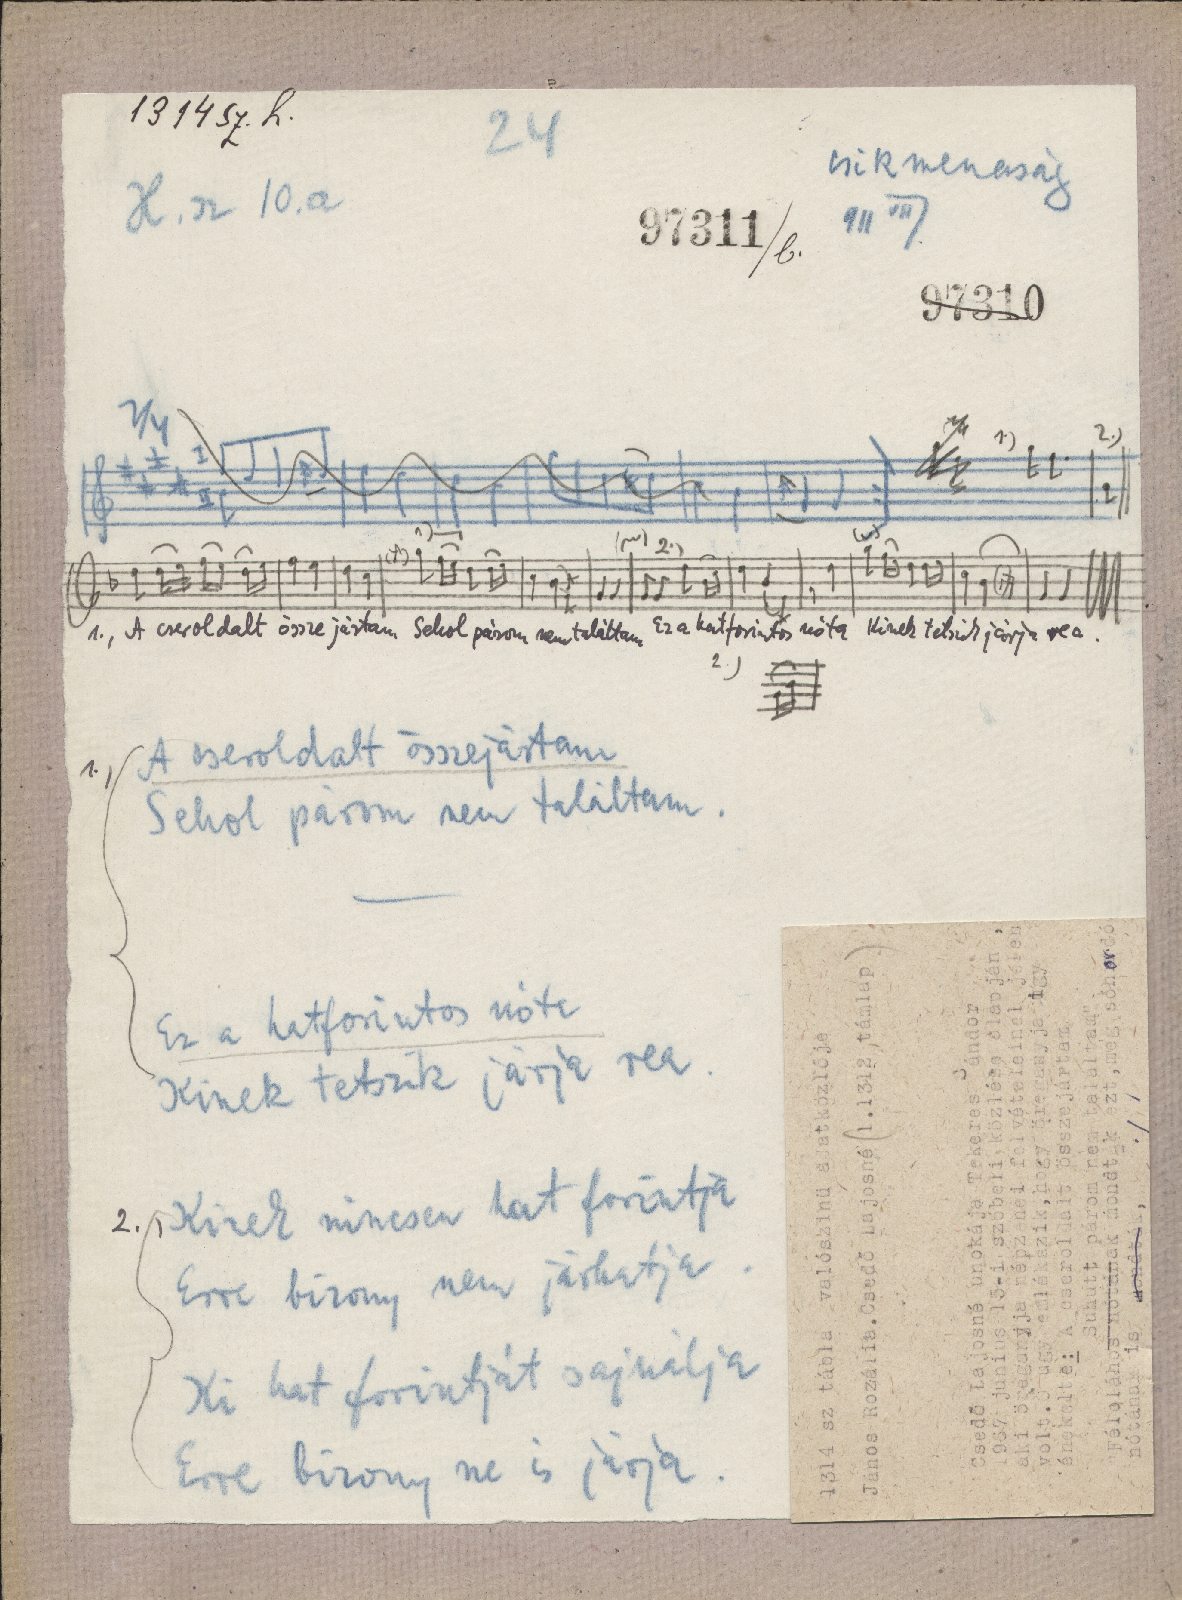 1314 sz. h.
24
H. sz 10.a
csikmenaság
911 VII
97311/b.
97310
2/4
I
II
1)
2.)
1)
2.)
1., A cseroldalt össze jártam Sehol párom nem találtam Ez a hatforintos nóta Kinek tetszik járja rea.
2.)
1.,
A cseroldalt összejártam
Sehol párom nem találtam.
Ez a hatforintos nóta
Kinek tetszik járja rea.
2.,
Kinek nincsen hat forintja
Erre bizony nem járhatja.
Ki hat forintját sajnálja
Erre bizony ne is járja.
1314 sz tábla valószinü adatközlője
János Rozália. Csedő Lajosné (l. 1312, támlap)
Csedő Lajosné unokája Tekeres Sándor
1967 junius 15-i szóbeli közlése alapján,
aki öreganyja népzenei felvételeinel jelen
volt. Ő ugy emlékszik, hogy öreganyja igy
énekelte: A cseroldalt összejártam
Suhutt párom nem találtam"
"Féloláhos nótának mondták ezt, meg sóhordó
nótának is